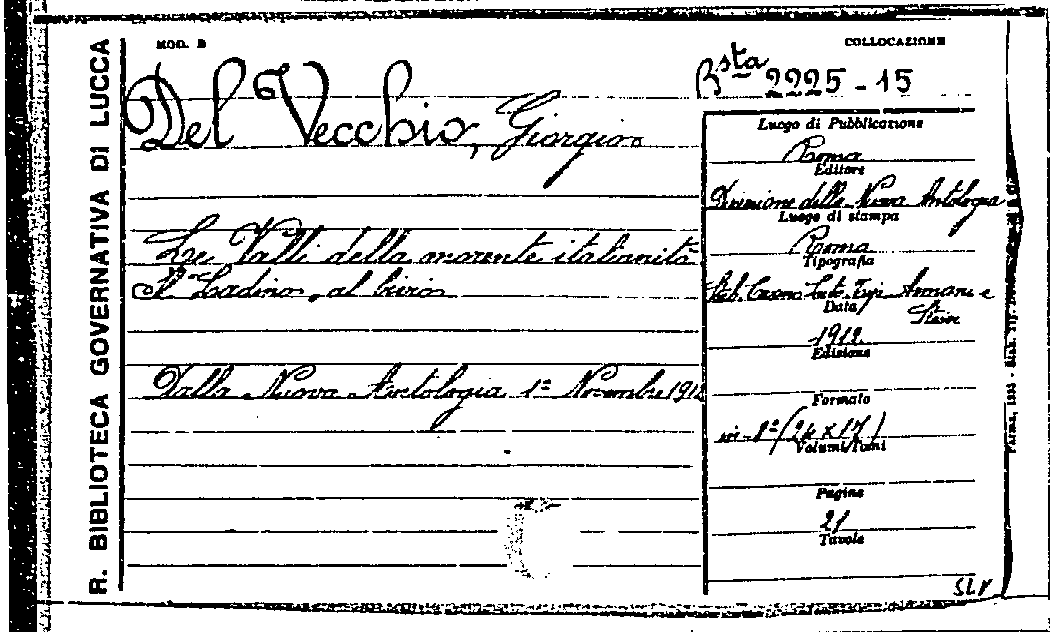 R. BIBLIOTECA GOVERNATIVA DI LUCCA
MOD. B
COLLOCAZIONE
Bsta 2225 - 15
Del Vecchio, Giorgio
Le Valli della morente italianità
Il "Ladino" al bivio
Dalla Nuova Antologia 1º Novembre 1912
Luogo di Pubblicazione
Roma
Editore
Direzione della Nuova Antologia
Luogo di stampa
Roma
Tipografia
Armani e
Stein
Data
1912
Edizione
Formato
in-8º (24 x 17)
Volumi/Tomi
Pagine
21
Tavole
SLV